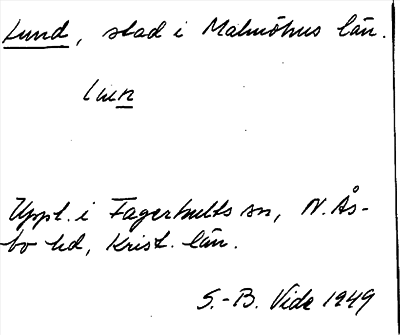 Lund, stad i Malmöhus län.
lun
Uppt. i Fagerhults sn, N. Ås-
bo hd, Krist. län.
S.-B. Vide 1949